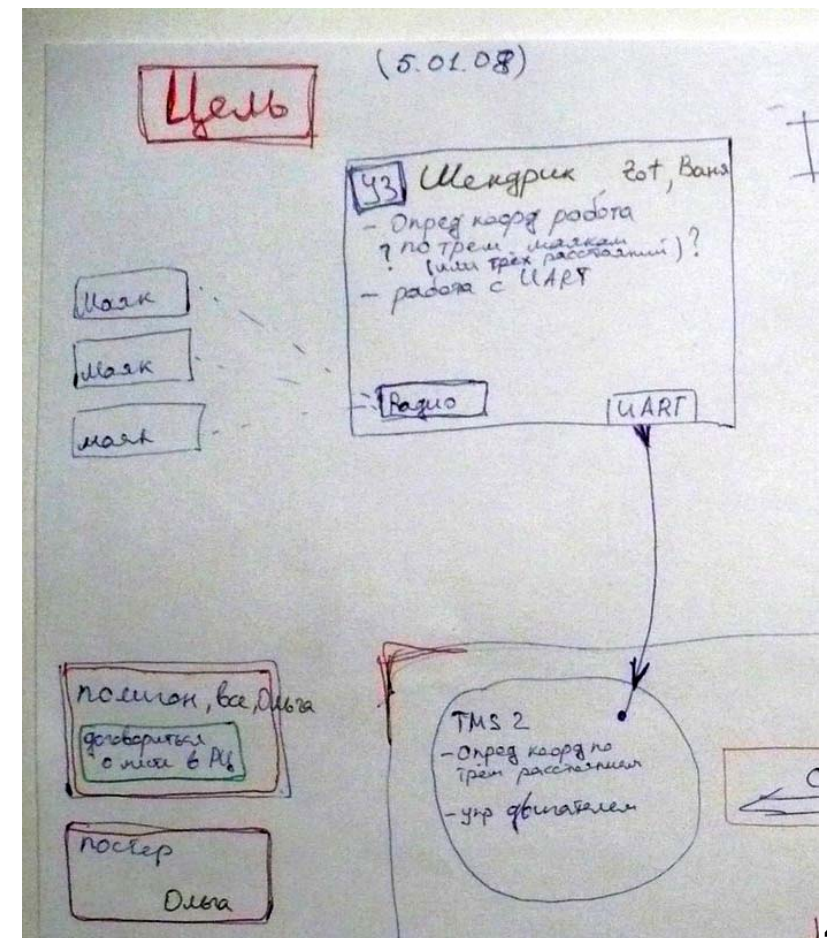 Цель
(5.01.08)
УЗ Шендрик Zot, Ваня
- Опред коорд робота
? по трем маякам
(или трёх расстояний) ?
- работа с UART
Маяк
Маяк
маяк
Радио
UART
полигон, все, Ольга
договориться
о месте в РЦ
постер
Ольга
TMS 2
- Опред коорд по
трём расстояниям
- упр двигателем